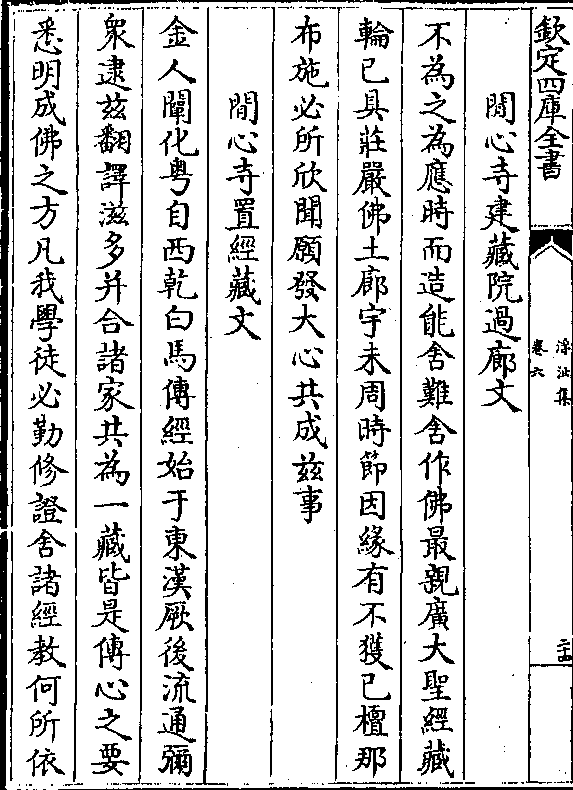 欽定四庫全書
浮沚集
卷六
二十四
閒心寺建藏院過廊文
不為之為應時而造能舍難舍作佛最親廣大聖經藏
輪已具莊嚴佛土廊宇未周時節因緣有不獲已檀那
布施必所欣聞願發大心共成兹事
閒心寺置經藏文
金人闡化粤自西乾白馬傳經始于東漢厥後流通彌
衆逮兹翻譯滋多并合諸家共為一藏皆是傳心之要
悉明成佛之方凡我學徒必勤修證舍諸經教何所依